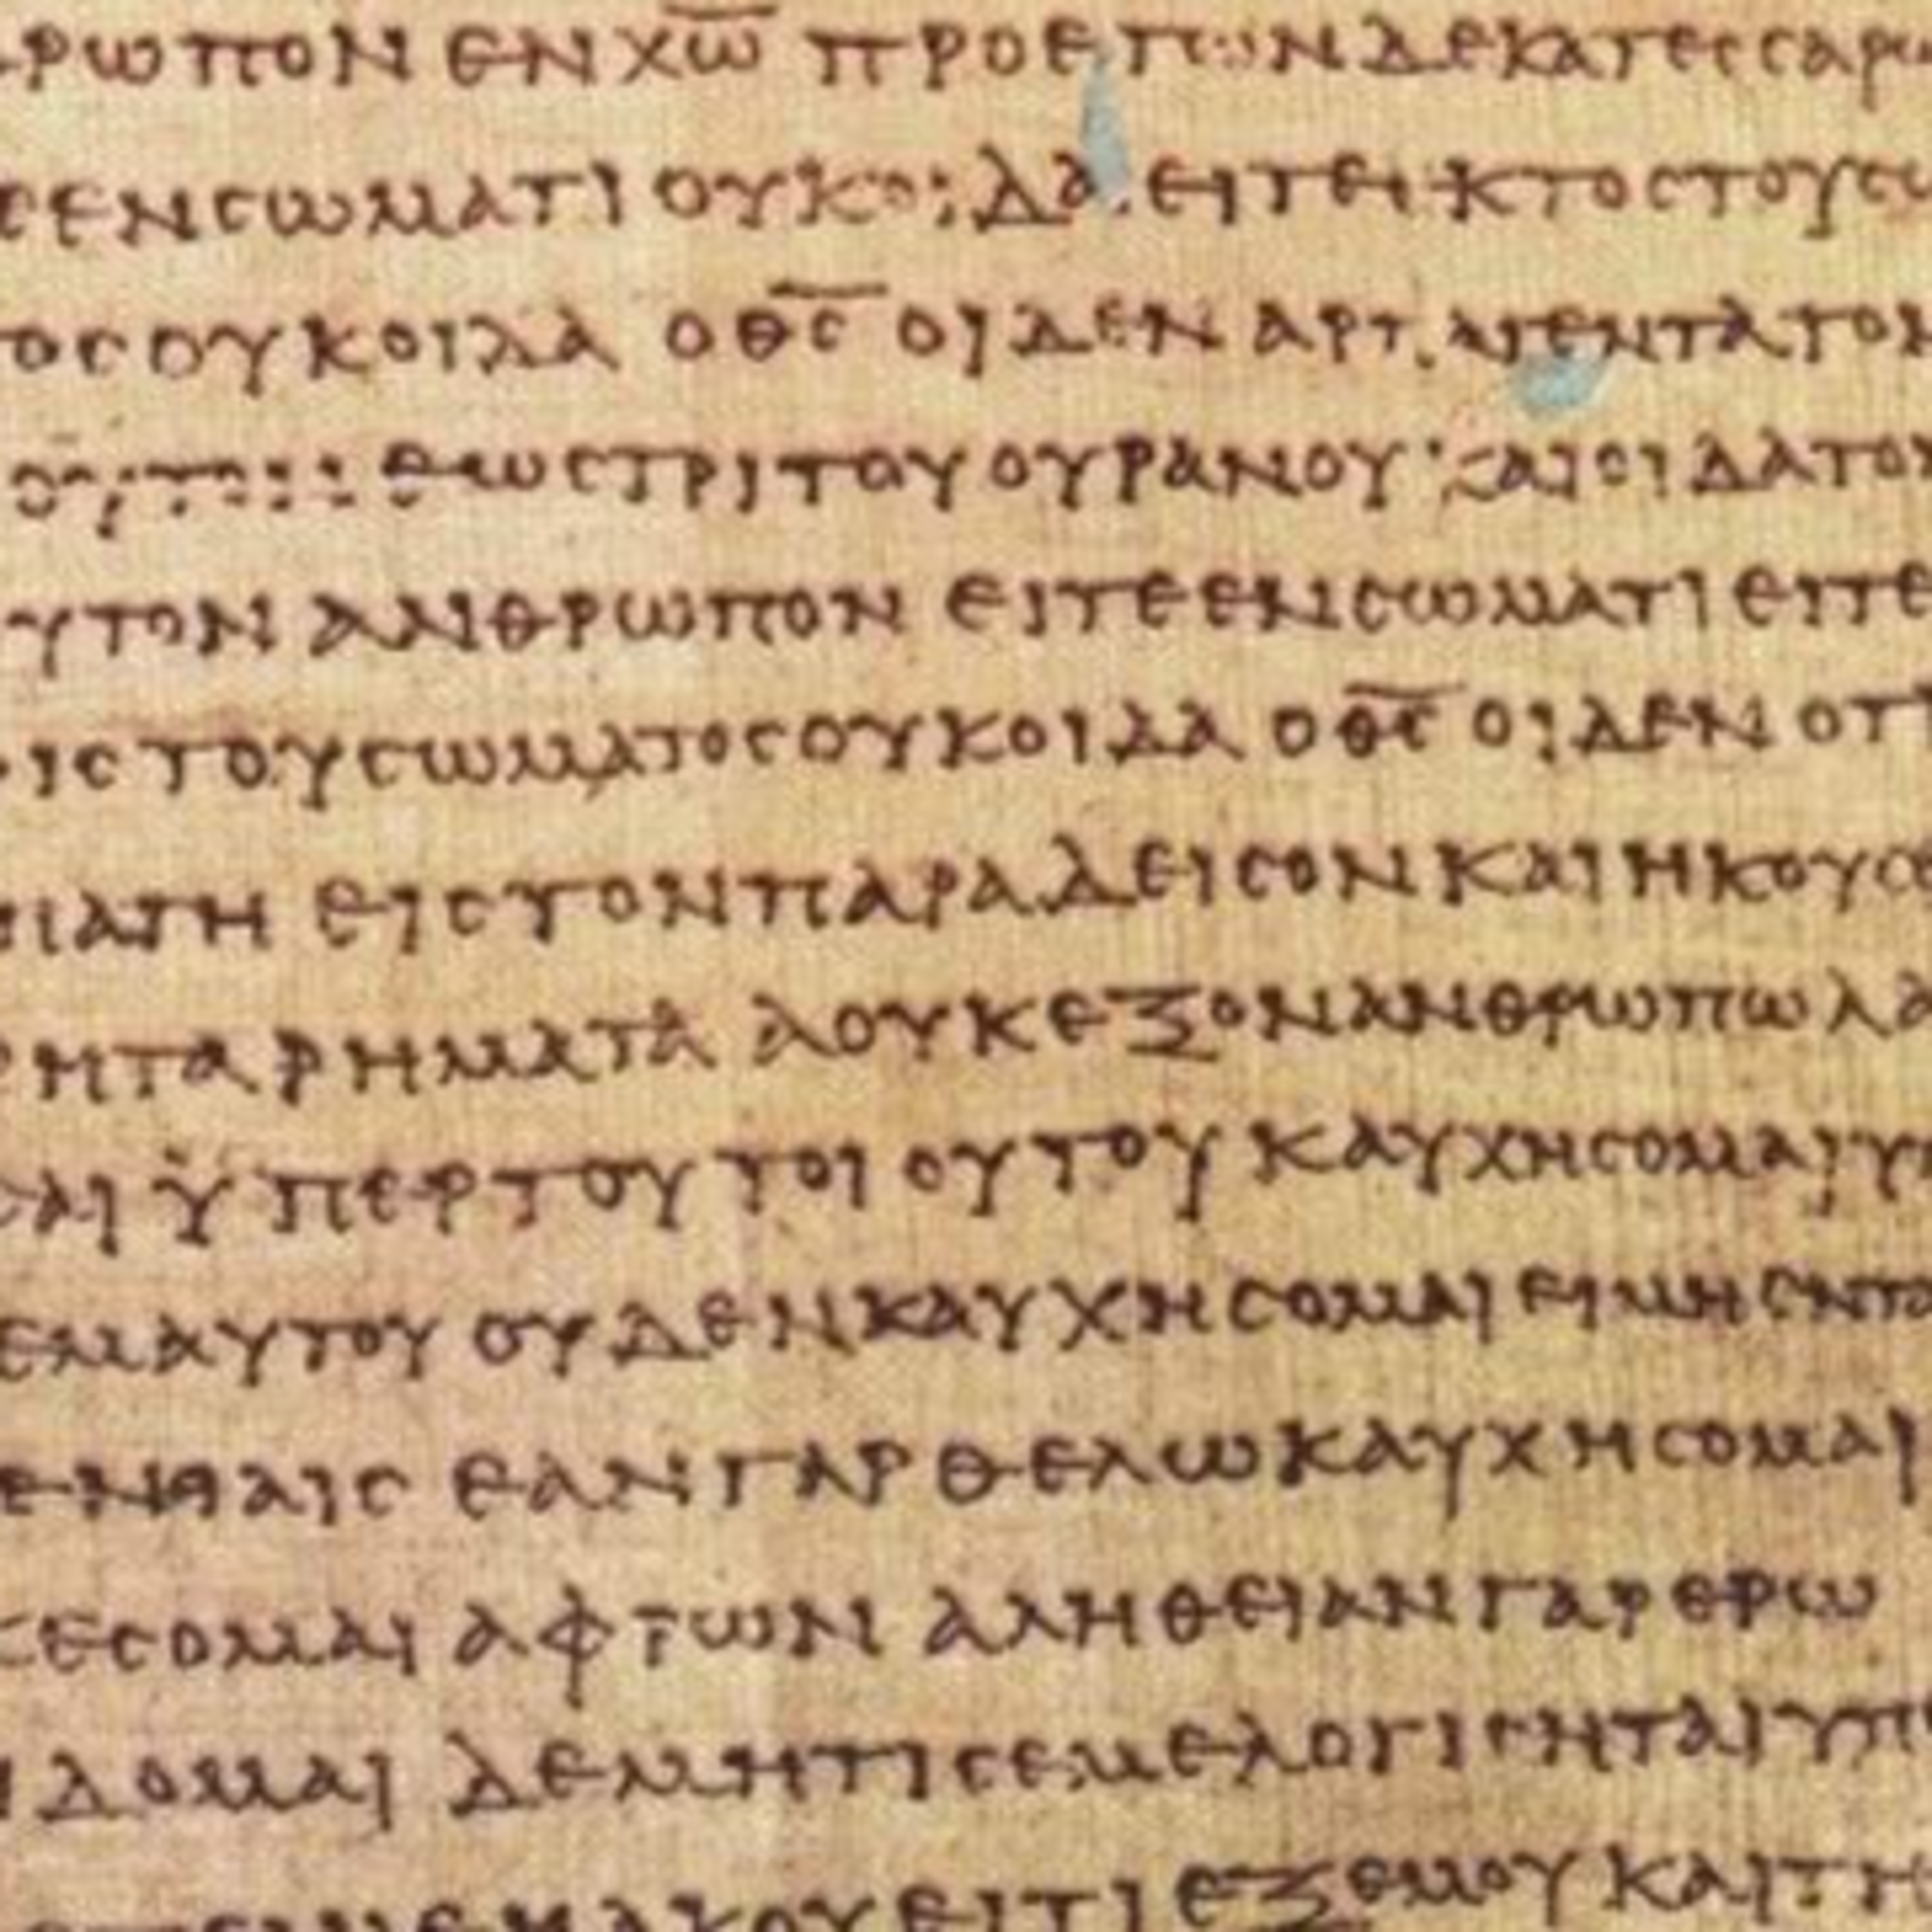 ΡΩΠΟΝ ΕΝ ΧΩ̅ ΠΡΟ ΕΤΩΝ ΔΕΚΑΤΕССΑΡΩ
ΕΝ СΩΜΑΤΙ ΟΥΚ ΟΙΔΑ ΕΙΤΕ ΕΚΤΟС ΤΟΥ СΩ
ΤΟС ΟΥΚ ΟΙΔΑ Ο Θ̅С̅ ΟΙΔΕΝ ΑΡΠΑΓΕΝΤΑ ΤΟΝ
ΤΟΙΟΥΤΟΝ ΕΩС ΤΡΙΤΟΥ ΟΥΡΑΝΟΥ ΚΑΙ ΟΙΔΑ ΤΟΝ
ΥΤΟΝ ΑΝΘΡΩΠΟΝ ΕΙΤΕ ΕΝ СΩΜΑΤΙ ΕΙΤΕ
ΡΙС ΤΟΥ СΩΜΑΤΟС ΟΥΚ ΟΙΔΑ Ο Θ̅С̅ ΟΙΔΕΝ ΟΤΙ
ΠΑΓΗ ΕΙС ΤΟΝ ΠΑΡΑΔΕΙСΟΝ ΚΑΙ ΗΚΟΥС
ΡΗΤΑ ΡΗΜΑΤΑ Α ΟΥΚ ΕΞΟΝ ΑΝΘΡΩΠΩ ΛΑ
СΑΙ ΫΠΕΡ ΤΟΥ ΤΟΙΟΥΤΟΥ ΚΑΥΧΗСΟΜΑΙ ΥΠ
ΕΜΑΥΤΟΥ ΟΥΔΕΝ ΚΑΥΧΗСΟΜΑΙ ΕΙ ΜΗ ΕΝ ΤΑ
ΕΝΙΑΙС ΕΑΝ ΓΑΡ ΘΕΛΩ ΚΑΥΧΗСΟΜΑΙ
ΕСΟΜΑΙ ΑΦΡΩΝ ΑΛΗΘΕΙΑΝ ΓΑΡ ΕΡΩ
ΙΔΟΜΑΙ ΔΕ ΜΗ ΤΙС ΕΜΕ ΛΟΓΙСΗΤΑΙ ΥΠ
ΒΛΕΠΕΙ ΜΕ Η ΑΚΟΥΕΙ ΤΙ ΕΞ ΕΜΟΥ ΚΑΙ ΤΗ